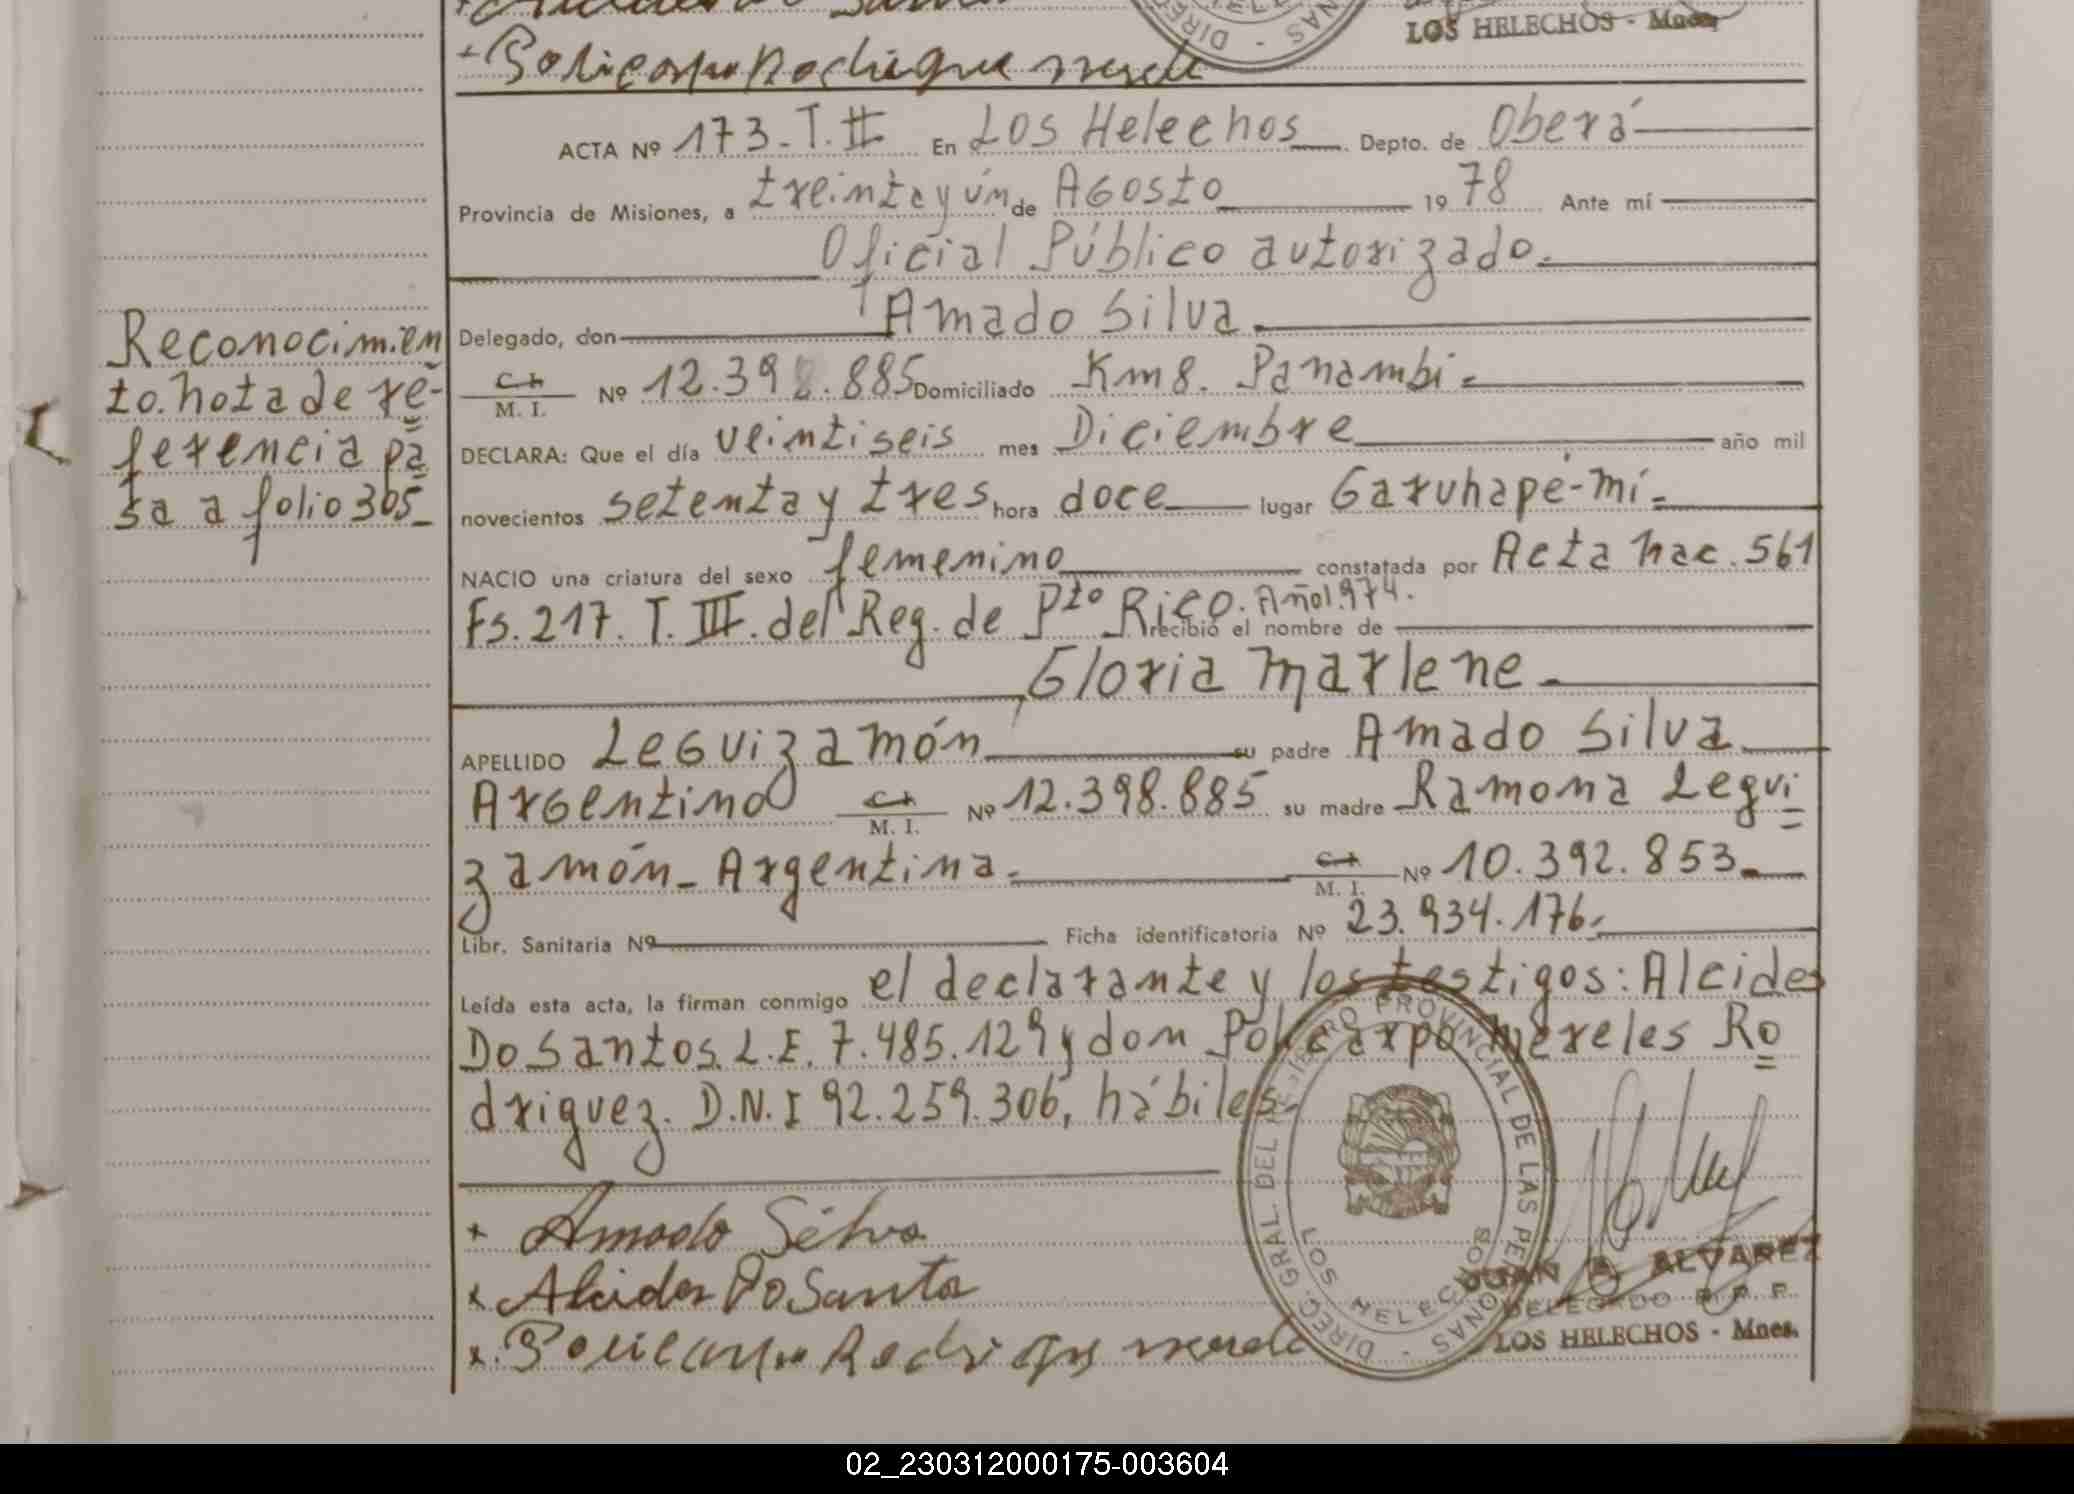 LOS HELECHOS - Mnes.
+ Policarpo Rodrigue merele
ACTA Nº 173-T.II En Los Helechos Depto. de Oberá
Provincia de Misiones, a treinta y ún de Agosto 1978 Ante mí
Oficial Público autorizado.
Delegado, don Amado Silva
C.I. M. I. Nº 12.398.885 Domiciliado Km 8. Panambi
DECLARA: Que el día veintiseis mes Diciembre año mil
novecientos setenta y tres hora doce lugar Garuhapé-mí
NACIO una criatura del sexo femenino constatada por Acta nac. 561
Fs. 217. T. III. del Reg. de Pto Rico. Año 1.974. recibió el nombre de
Gloria Marlene
APELLIDO Leguizamón su padre Amado Silva
Argentino C.I. M. I. Nº 12.398.885 su madre Ramona Legui
zamón - Argentina. C.I. M. I. Nº 10.392.853
Libr. Sanitaria Nº Ficha identificatoria Nº 23.934.176
Leída esta acta, la firman conmigo el declarante y los testigos: Alcides
Do Santos. L.E. 7.485.129 y don Policarpo Mereles Ro
driguez. D.N.I 92.259.306, hábiles.
Reconocimien
to. nota de re-
ferencia pa
sa a folio 305
+ Amado Silva
x Alcides Do Santo
x Policarpo Rodrigue merele
DIREC. GRAL. DEL REGISTRO PROVINCIAL DE LAS PERSONAS
LOS HELECHOS
JUAN A. ALVAREZ
DELEGADO R. P. P.
LOS HELECHOS - Mnes.
02_230312000175-003604